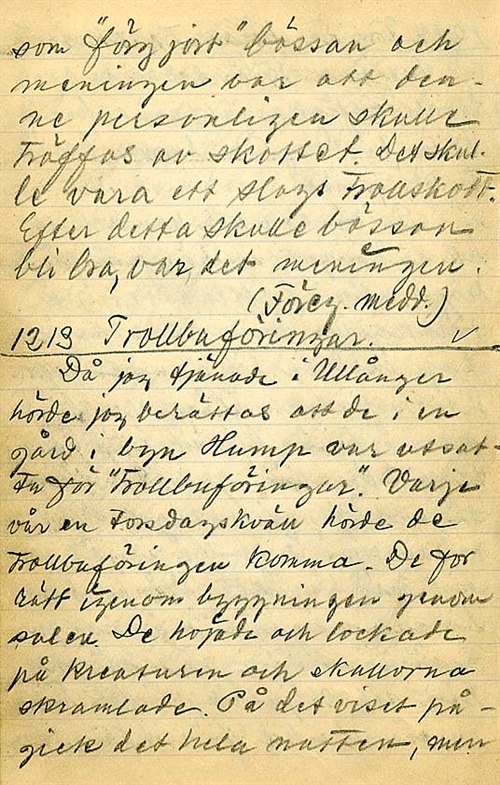 som "förgjort" bössan och
meningen var att den-
ne personligen skulle
träffas av skottet. Det skul-
le vara ett slags Trollskott.
Efter detta skulle bössan
bli bra, var det meningen.
(Föreg. medd.)
1213 Trollbuföringar. ✓
Då jag tjänade i Ullånger
hörde jag berättas att de i en
gård i byn Hump var utsat-
ta för "Trollbuföringar". Varje
vår en Torsdagskväll hörde de
Trollbuföringen komma. De for
rätt igenom byggningen genom
salen. De hojade och lockade
på kreaturen och skallorna
skramlade. På det viset på-
gick det hela natten, men